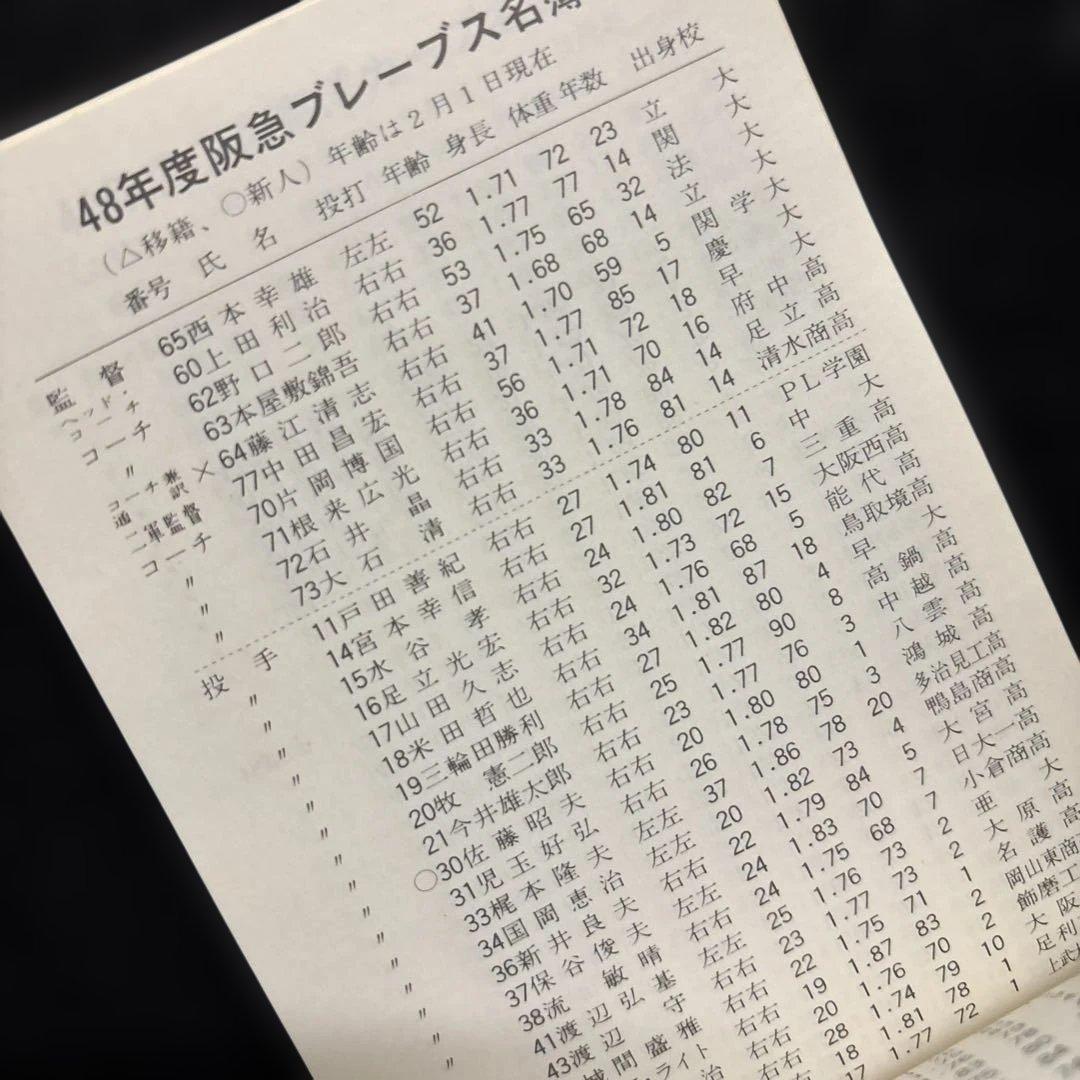 48年度阪急ブレーブス名簿
(△移籍、○新人) 年齢は2月1日現在
番号 氏名 投打 年齢 身長 体重 年数 出身校
監督 65 西本幸雄 左左 52 1.71 72 23 立大
ヘッド・コーチ 60 上田利治 右右 36 1.77 77 14 関大
コーチ 62 野口二郎 右右 53 1.75 65 32 法大
〃 63 本屋敷錦吾 右右 37 1.68 68 14 立大
コーチ兼通訳 ×64 藤江清志 右右 41 1.70 59 5 関学大
二軍監督 77 中田昌宏 右右 37 1.77 85 17 慶大
コーチ 70 片岡博国 右右 56 1.71 72 18 早大
〃 71 根来広光 右右 36 1.71 70 16 府中高
〃 72 石井晶 右右 33 1.78 84 14 足立高
〃 73 大石清 右右 33 1.76 81 14 清水商高
投手 11 戸田善紀 右右 27 1.74 80 11 PL学園
〃 14 宮本幸信 右右 27 1.81 81 6 中大
〃 15 水谷孝 右右 24 1.80 82 7 三重高
〃 16 足立光宏 右右 32 1.73 72 15 大阪西高
〃 17 山田久志 右右 24 1.76 68 5 能代高
〃 18 米田哲也 右右 34 1.81 87 18 鳥取境高
〃 19 三輪田勝利 右右 27 1.82 80 4 早大
〃 20 牧憲二郎 右右 25 1.77 90 8 高鍋高
〃 21 今井雄太郎 右右 23 1.77 76 3 中越高
〃 ○30 佐藤昭夫 右右 20 1.80 80 1 八雲高
〃 31 児玉好弘 左左 26 1.78 75 3 鴻城高
〃 33 梶本隆夫 左左 37 1.86 78 20 多治見工高
〃 34 国岡恵治 右右 20 1.82 73 4 鴨島商高
〃 36 新井良夫 左左 22 1.79 84 5 大宮高
〃 37 保谷俊夫 右右 24 1.83 70 7 日大一高
38 流敏晴 左左 24 1.75 68 7 小倉商高
41 渡辺弘基 右右 25 1.76 73 2 亜大
43 渡辺守 右右 23 1.77 73 2 大原高
城間盛雅 右右 22 1.75 71 1 名護高
ライト 右右 19 1.87 83 2 岡山東商
治 20 1.76 70 飾磨工
28 1.74 79 10 大阪
18 1.81 78 1 足利
17 1.77 72 上武大